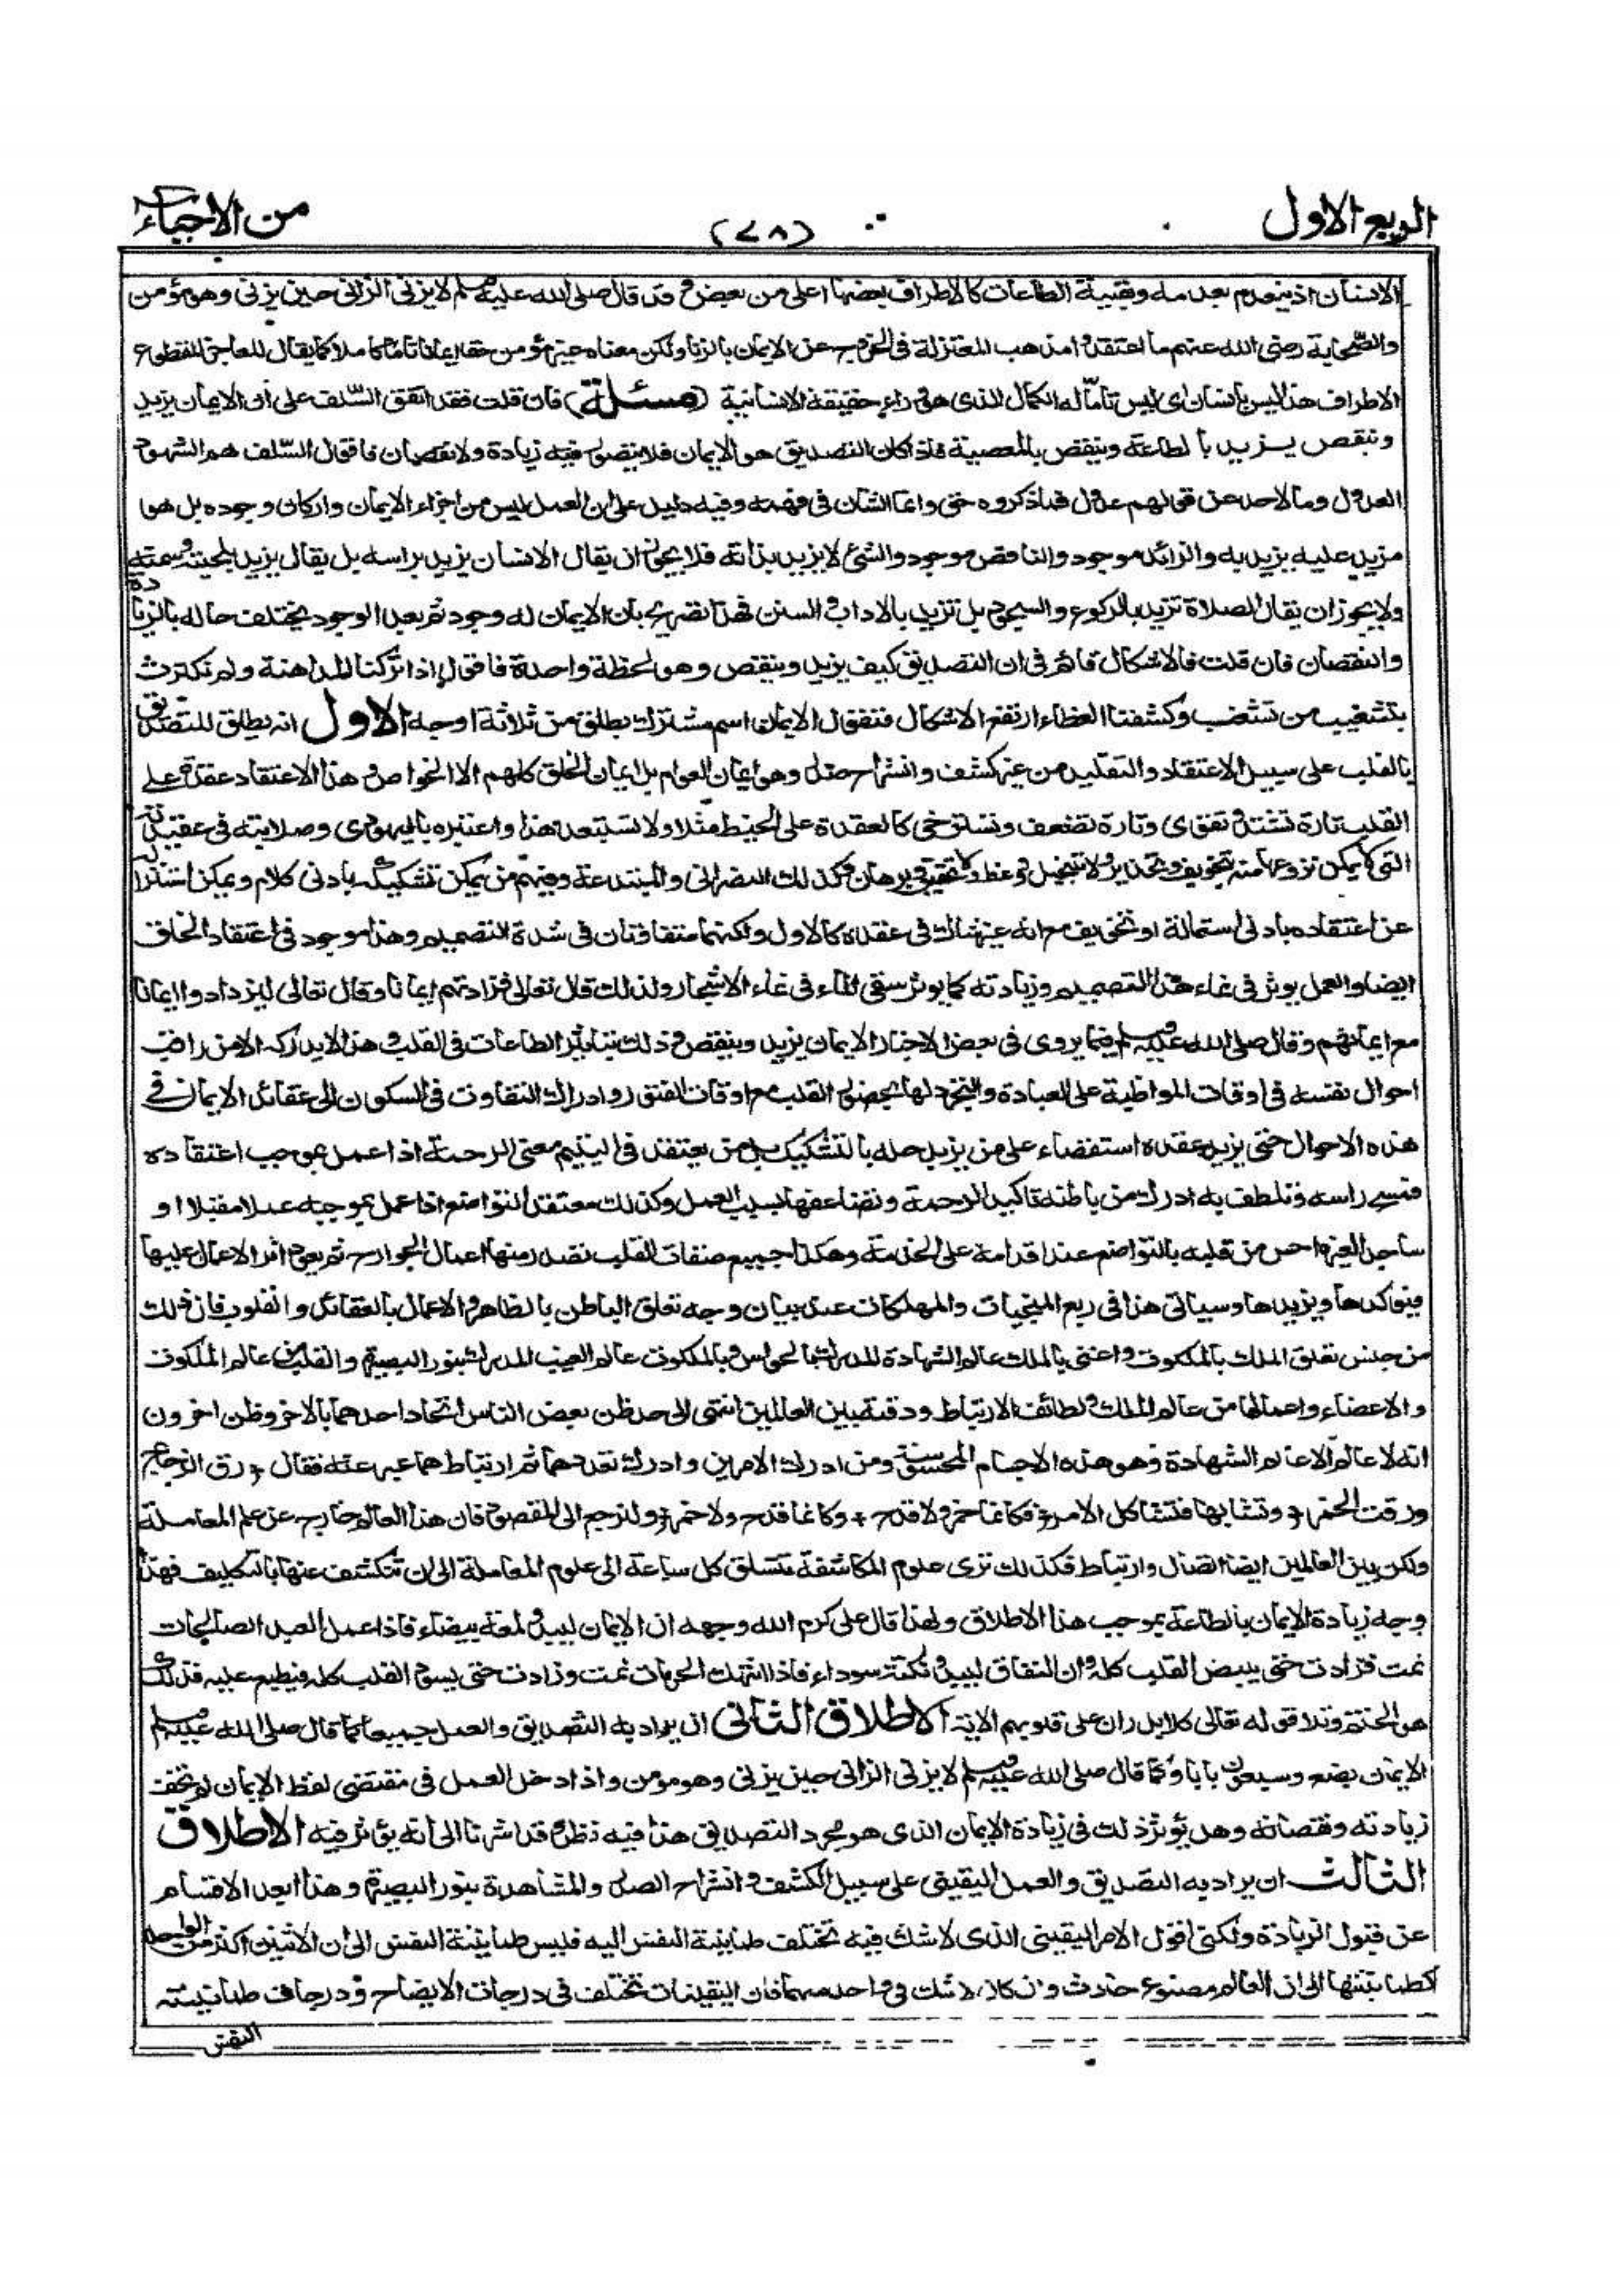 الربع الاول
(٧٨)
من الاحياء
الانسان اذ ينعدم بعدمه وبقية الطاعات كالاطراف بعضها اعلى من بعض وقد قال صلى الله عليه وسلم لا يزنى الزانى حين يزنى وهو مؤمن
والصحابة رضى الله عنهم ما اعتقدوا مذهب المعتزلة فى الخروج عن الايمان بالزنا ولكن معناه غير مؤمن حقا ايمانا تاما كاملا كما يقال للعاجز المقطوع
الاطراف هذا ليس بانسان اى ليس تاما له الكمال الذى هو وراء حقيقة الانسانية (مسئلة) فان قلت فقد اتفق السلف على أن الايمان يزيد
وينقص يزيد بالطاعة وينقص بالمعصية فاذا كان التصديق هو الايمان فلا يتصور فيه زيادة ولا نقصان فاقول السلف هم الشهود
العدول وما لاحد عن قولهم عدول فما ذكروه حق وانما الشان فى فهمه وفيه دليل على ان العمل ليس من اجزاء الايمان واركان وجوده بل هو
مزيد عليه يزيد به والزائد موجود والناقص موجود والشئ لا يزيد بذاته فلا يجوز ان يقال الانسان يزيد براسه بل يقال يزيد بلحيته وسمنه
ولا يجوز ان يقال الصلاة تزيد بالركوع والسجود بل تزيد بالاداب والسنن فهذا تصريح بان الايمان له وجود ثم بعد الوجود يختلف حاله بالزيادة
والنقصان فان قلت فالاشكال قائم فى ان التصديق كيف يزيد وينقص وهو لحظة واحدة فاقول اذا تركنا المداهنة ولم نكترث
بتشغيب من تشغب وكشفنا الغطاء ارتفع الاشكال فنقول الايمان اسم مشترك يطلق من ثلاثة اوجه الاول انه يطلق للتصديق
بالقلب على سبيل الاعتقاد والتقليد من غير كشف وانشراح صدر وهو ايمان العوام بل ايمان الخلق كلهم الا الخواص وهذا الاعتقاد عقدة على
القلب تارة تشتد وتقوى وتارة تضعف وتسترخى كالعقدة على الخيط مثلا ولا تستبعد هذا واعتبره باليهودى وصلابته فى عقيدته
التى لا يمكن نزوعه منه بتخويف وتحذير ولا بتخييل ووعظ ولا تحقيق وبرهان وكذلك النصرانى والمبتدعة وفيهم من يمكن تشكيكه بادنى كلام ويمكن استنزاله
عن اعتقاده بادنى استمالة او تخويف مع انه غير شاك فى عقده كالاول ولكنهما متفاوتان فى شدة التصميم وهذا موجود فى اعتقاد الحق
ايضا والعمل يوثر فى نماء هذا التصميم وزيادته كما يوثر سقى الماء فى نماء الاشجار ولذلك قال تعالى فزادتهم ايمانا وقال تعالى ليزدادوا ايمانا
مع ايمانهم وقال صلى الله عليه وسلم فيما يروى فى بعض الاخبار الايمان يزيد وينقص وذلك بتاثير الطاعات فى القلب وهذا لا يدركه الا من راقب
احوال نفسه فى اوقات المواظبة على العبادة والتجرد لها بحضور القلب مع اوقات الفتور وادراك التفاوت فى السكون الى عقائد الايمان فى
هذه الاحوال حتى يزيد عقده استقصاء على من يزيد حله بالتشكيك بل من يعتقد فى اليتيم معنى الرحمة اذا عمل بموجب اعتقاده
فمسح راسه وتلطف به ادرك من باطنه تاكيد الرحمة وتضاعفها بسبب العمل وكذلك معتقد التواضع اذا عمل بموجبه عملا مقبلا او
ساجدا لغيره احس من قلبه بالتواضع عند اقدامه على الخدمة وهكذا جميع صفات القلب تصدر منها اعمال الجوارح ثم يعود اثر الاعمال عليها
فيؤكدها ويزيدها وسياتى هذا فى ربع المنجيات والمهلكات عند بيان وجه تعلق الباطن بالظاهر والاعمال بالعقائد والقلوب فان ذلك
من جنس تعلق الملك بالملكوت واعنى بالملك عالم الشهادة المدرك بالحواس وبالملكوت عالم الغيب المدرك بنور البصيرة والقلب من عالم الملكوت
والاعضاء واعمالها من عالم الملك ولطائف الارتباط ودقته بين العالمين انتهى الى حد ظن بعض الناس اتحاد احدهما بالاخر وظن اخرون
انه لا عالم الا عالم الشهادة وهو هذه الاجسام المحسوسة ومن ادرك الامرين وادرك تعددهما ثم ارتباطهما عبر عنه فقال رق الزجاج
ورقت الخمر وتشابها فتشاكل الامر فكانما خمر ولا قدح وكانما قدح ولا خمر ولنرجع الى المقصود فان هذا العالم خارج عن علم المعاملة
ولكن بين العالمين ايضا اتصال وارتباط فكذلك ترى علوم المكاشفة تتسلق كل ساعة الى علوم المعاملة الى ان تنكشف عنها بالتكليف فهذا
وجه زيادة الايمان بالطاعة بموجب هذا الاطلاق ولهذا قال على كرم الله وجهه ان الايمان ليبدو لمعة بيضاء فاذا عمل العبد الصالحات
نمت فزادت حتى يبيض القلب كله وان النفاق ليبدو نكتة سوداء فاذا انتهك الحرمات نمت وزادت حتى يسود القلب كله فيطبع عليه فذلك
هو الختم وتلا قوله تعالى كلا بل ران على قلوبهم الاية الاطلاق الثانى ان يراد به التصديق والعمل جميعا كما قال صلى الله عليه وسلم
الايمان بضع وسبعون بابا وكما قال صلى الله عليه وسلم لا يزنى الزانى حين يزنى وهو مؤمن واذا دخل العمل فى مقتضى لفظ الايمان لم تخف
زيادته ونقصانه وهل يؤثر ذلك فى زيادة الايمان الذى هو مجرد التصديق هذا فيه نظر وقد اشرنا الى انه يؤثر فيه الاطلاق
الثالث ان يراد به التصديق والعمل اليقينى على سبيل الكشف وانشراح الصدر والمشاهدة بنور البصيرة وهذا ابعد الاقسام
عن قبول الزيادة ولكنى اقول الامر اليقينى الذى لا شك فيه تختلف طمانينة النفس اليه فليس طمانينة النفس الى ان الاثنين اكثر من الواحد
كطمانينتها الى ان العالم مصنوع حادث وان كان لا شك فى واحد منهما فان اليقينيات تختلف فى درجات الايضاح ودرجات طمانينته
النفس